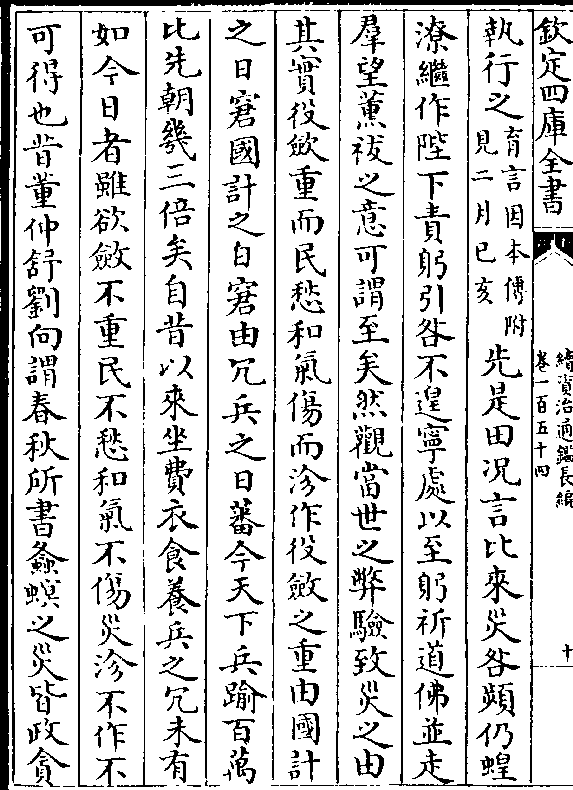 欽定四庫全書
續資治通鑑長編
卷一百五十四
十
執行之育言因本傳附見二月已亥先是田况言比來災咎頻仍蝗
潦繼作陛下責躬引咎不遑寧處以至躬祈道佛並走
羣望薰祓之意可謂至矣然觀當世之弊驗致災之由
其實役斂重而民愁和氣傷而沴作役斂之重由國計
之日窘國計之日窘由冗兵之日蕃今天下兵踰百萬
比先朝幾三倍矣自昔以來坐費衣食養兵之冗未有
如今日者雖欲斂不重民不愁和氣不傷災沴不作不
可得也昔董仲舒劉向謂春秋所書螽螟之災皆政貪